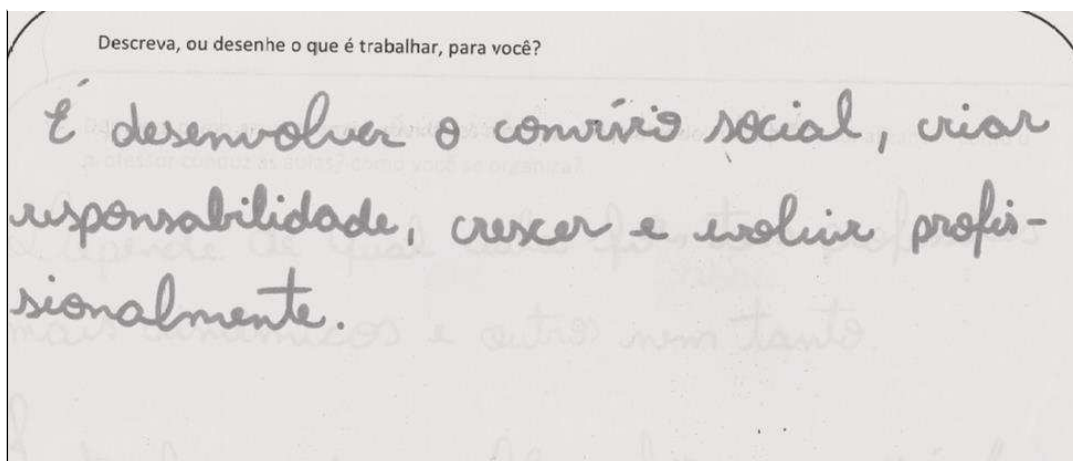 Descreva, ou desenhe o que é trabalhar, para você?
É desenvolver o convívio social, criar
responsabilidade, crescer e evoluir profis-
sionalmente.
mais dinâmicos e outros nem tanto